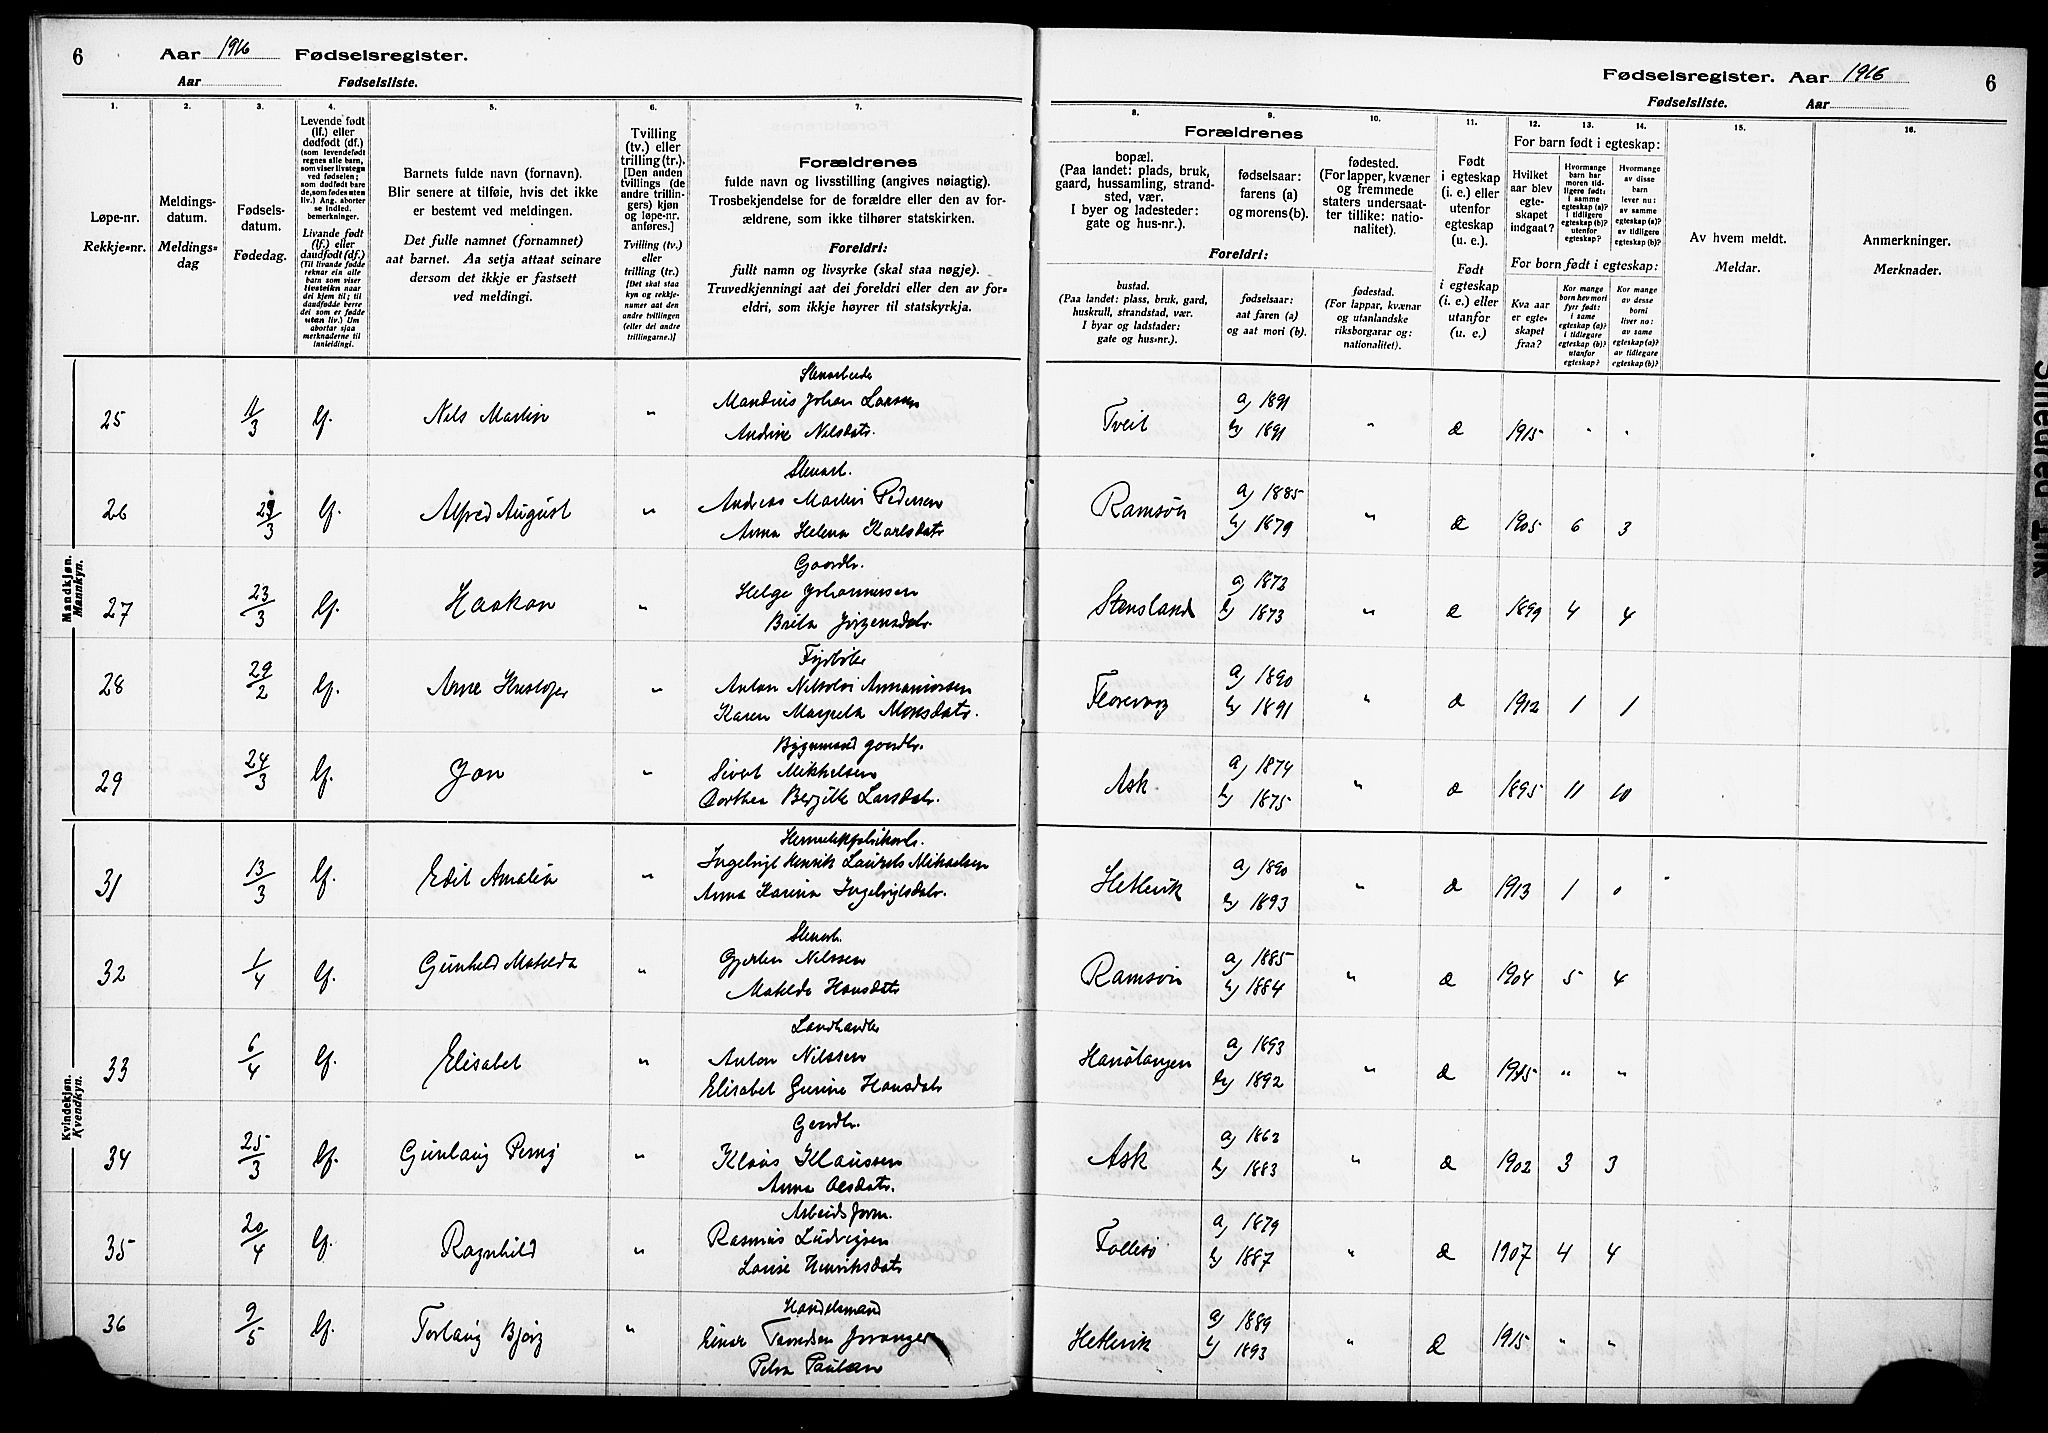 6 Aar 1916 Fødselsregister.
Aar Fødselsliste.
1. 2. 3. 4. 5. 6. 7.
Løpe-nr.
Rekkje-nr.
Meldings-
datum.
Meldings-
dag
Fødsels-
datum.
Fødedag.
Levende født
(lf.) eller
dødfødt (df.)
(som levendefødt
regnes alle barn,
som viser livstegn
ved fødselen;
som dødfødt bare
de, som fødes uten
liv.) Ang. aborter
se indled.
bemerkninger.
Livande født
(lf.) eller
daudfødt (df.)
(Til livande fødde
reknar ein alle
barn som viser
livsteikn naar
dei kjem til; til
daudfødde berre
dei som er fødde
utan liv.) Um
abortar sjaa
merknaderne til
innleidingi.
Barnets fulde navn (fornavn).
Blir senere at tilføie, hvis det ikke
er bestemt ved meldingen.
Det fulle namnet (fornamnet)
aat barnet. Aa setja attaat seinare
dersom det ikkje er fastsett
ved meldingi.
Tvilling
(tv.) eller
trilling (tr.).
[Den anden
tvillings (de
andre trillin-
gers) kjøn
og løpe-nr.
anføres.]
Tvilling (tv.)
eller
trilling (tr.)
[Det skal staa
kyn og rekkje-
numer aat den
andre tvillingen
(eller dei andre
trillingarne.)]
Forældrenes
fulde navn og livsstilling (angives nøiagtig).
Trosbekjendelse for de forældre eller den av for-
ældrene, som ikke tilhører statskirken.
Foreldri:
fullt namn og livsyrke (skal staa nøgje).
Truvedkjenningi aat dei foreldri eller den av for-
eldri, som ikkje høyrer til statskyrkja.
Mandkjøn.
Mannkyn.
25 11/3 lf. Nels Martin "
Stenarbeide
Mandius Johan Larsen
Andrine Nilsdatr.
26 29/3 lf. Alfred August "
Stenarb.
Andreas Martin Pedersen
Anna Helena Karlsdatr
27 23/3 lf. Haakon "
Gaardbr.
Helge Johannessen
Brita Jørgensdatr.
28 29/2 lf. Arne Kristofer "
Anton Nikolai
Karen Margreta Monsdatr.
29 24/3 lf. Jon "
Bygnmand gaardbr.
Sivert Mikkelsen
Dorthea Bergitte Larsdatr.
Kvindekjøn.
Kvendkyn.
31 13/3 lf. Edit Amalia "
Ingelvigt Henrik Laurets Mikkelsen
Anna Karina Ingelvigtsdatr.
32 1/4 lf. Gunhild Matilda "
Stenarb.
Gjerten Nilssen
Matilde Hansdatr
33 6/4 lf. Elisabet "
Landhandler
Anton Nilssen
Elisabet Gurine Hansdatr
34 25/3 lf. Gunlaug "
Gaardbr.
Klaus Klaussen
Anna Olsdatr.
35 20/4 lf. Ragnhild "
Arbeidsform.
Rasmus Ludvigsen
Louise Henriksdatr
36 9/5 lf. Torlaug Bjørg "
Handelsmand
Einar
Petra Paulsen
Fødselsregister. Aar 1916 6
Fødselsliste. Aar
8. 9. 10. 11. 12. 13. 14. 15. 16.
Forældrenes
bopæl.
(Paa landet: plads, bruk,
gaard, hussamling, strand-
sted, vær.
I byer og ladesteder:
gate og hus-nr.).
fødselsaar:
farens (a)
og morens (b).
fødested.
(For lapper, kvæner
og fremmede
staters undersaat-
ter tillike: natio-
nalitet).
Foreldri:
bustad.
(Paa landet: plass, bruk, gard,
huskrull, strandstad, vær.
I byar og ladstader:
gate og hus-nr.).
fødselsaar:
aat faren (a)
og aat mori (b).
fødestad.
(For lappar, kvænar
og utanlandske
riksborgarar og:
nationalitet).
Født
i egteskap
(i. e.) eller
utenfor
egteskap
(u. e.).
Født
i egteskap
(i. e.) eller
utanfor
(u. e.)
For barn født i egteskap:
Hvilket
aar blev
egte-
skapet
indgaat?
Hvormange
barn har
moren tid-
ligere født:
i samme
egteskap (a)?
i tidligere
egteskap (b)?
utenfor
egteskap?
Hvormange
av disse
barn
lever nu:
av samme
egteskap (a)?
av tidligere
egteskap (b)?
For born født i egteskap:
Kva aar
er egte-
skapet
fraa?
Kor mange
born hev mori
fyrr født:
i same
egteskap (a)?
i tidlegare
egteskap (b)?
utanfor
egteskap?
Kor mange
av desse
borni
liver no:
av same
egteskap (a)?
av tidlegare
egteskap (b)?
Av hvem meldt.
Meldar.
Anmerkninger.
Merknader.
Tveit a) 1891 b) 1891 " æ 1915 " "
Ramsøn a) 1885 b) 1879 " æ 1905 6 3
Stensland a) 1872 b) 1873 " æ 1899 4 4
Florevaag a) 1890 b) 1891 " æ 1912 1 1
Ask a) 1874 b) 1875 " æ 1895 11 10
Hetlevik a) 1890 b) 1893 " æ 1913 1 0
Ramsøn a) 1885 b) 1884 " æ 1904 5 4
Hanøtangen a) 1893 b) 1892 " æ 1915 " "
Ask a) 1862 b) 1883 " æ 1902 3 3
Follesø a) 1879 b) 1887 " æ 1907 4 4
Hetlevik a) 1889 b) 1893 " æ 1915 " "